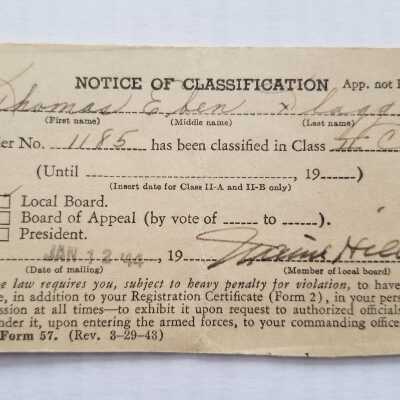 NOTICE OF CLASSIFICATION App. not
Thomas Eben
(First name) (Middle name) (Last name)
er No. 1185 has been classified in Class II C
(Until ............, 19......)
(Insert date for Class II-A and II-B only)
Local Board.
Board of Appeal (by vote of ...... to ......).
President.
JAN 12 '44, 19
(Date of mailing) (Member of local board)
e law requires you, subject to heavy penalty for violation, to hav
e, in addition to your Registration Certificate (Form 2), in your pers
ession at all times—to exhibit it upon request to authorized officials
nder it, upon entering the armed forces, to your commanding office
Form 57. (Rev. 3-29-43)